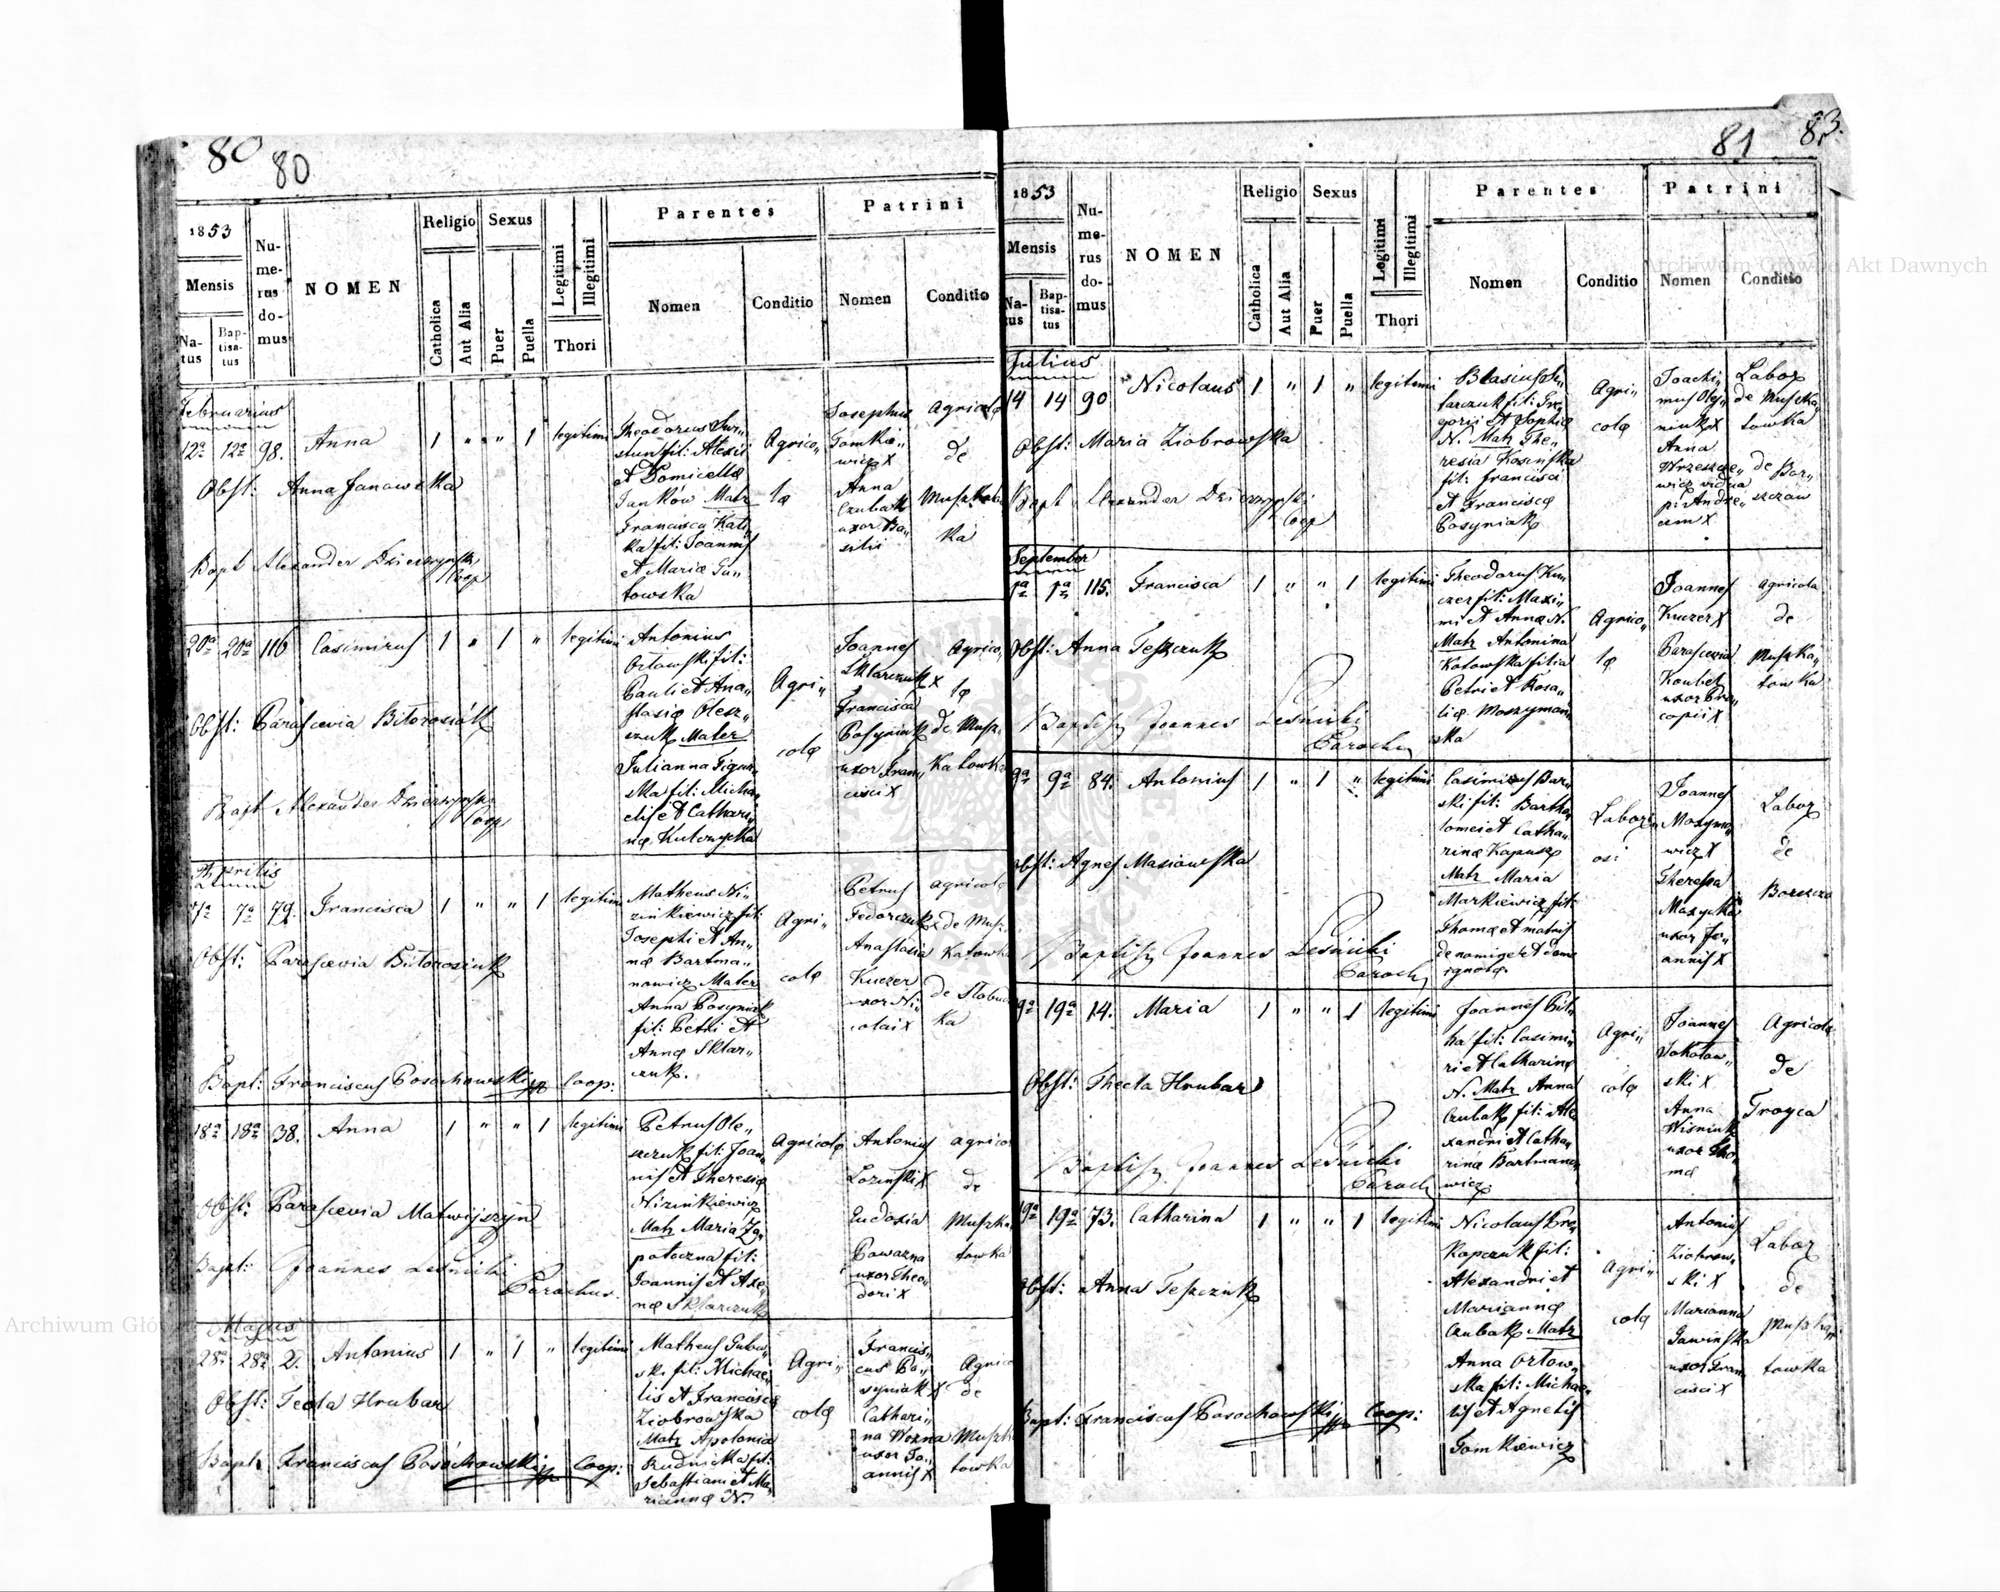 80
80
1853
Mensis
Natus
Baptisatus
Numerus domus
NOMEN
Religio
Catholica
Aut Alia
Sexus
Puer
Puella
Legitimi
Illegitimi
Thori
Parentes
Nomen
Conditio
Patrini
Nomen
Conditio
Februarius
12ª 12ª 98. Anna 1 " " 1 legitimi
Obst: Anna Janowska
Bapt Alexander Dzierzynski
Coop
Theodorus
fil: Alexii
et Domicella
Janków Matr
Francisca
ka fil: Joannis
et Maria
towska
Agrico„
lae
Josephus
Tomkie„
wicz X
Anna
Czubak
uxor Ba„
silii
Agricola
de
Muszkatow
ka
20ª 20ª 116 Casimirus 1 " 1 " legitimi
Obst: Parascevia Bitorosiuk
Bapt Alexander Dzierzynski
Coop
Antonius
Orlowski fil:
Pauli et Ana„
stasiae Olesz„
czuk Mater
Julianna
ska fil: Micha„
elis et Cathari„
nae
Agri„
colae
Joannes
Sklarczuk X
Francisca
Posyniuk
uxor Fran„
cisci X
Agrico„
la
de Musz„
katowka
Aprilis
7ª 7ª 79. Francisca 1 " " 1 legitimi
Obst: Parascevia Bitorosiuk
Bapt: Franciscus Posochowski Coop:
Matheus Ni„
zinkiewicz fil:
Josephi et An„
nae Bartma„
nowicz Mater
Anna Posyniak
fil: Petri et
Annae Sklar„
czuk.
Agri„
colae
Petrus
Fedorczuk X
Anastasia
Kuczer
uxor Ni„
colai X
agricola
de Mus„
katowka
de Slobud
ka
18ª 18ª 38. Anna 1 " " 1 legitimi
Obst: Parascevia Matwijszyn
Bapt: Joannes Lesnicki
Parochus.
Petrus Ole„
szczuk fil: Joan„
nis et Theresiae
Nizinkiewicz
Matr Maria Za„
potoczna fil:
Joannis et Axe„
nae Sklarczuk
Agricolae
Antonius
Lozinski X
Eudosia
Pawazna
uxor Theo„
dori X
agrico
de
Muszka
towka
Majus
28ª 28ª 2. Antonius 1 " 1 " legitimi
Obst: Tecla Hrubar
Bapt: Franciscus Posochowski Coop:
Matheus Gubow„
ski fil: Michae„
lis et Francisca
Ziobrowska
Matr Apolonia
Rudnicka fil:
Sebastiani et Ma„
riannae N.
Agri„
colae
Francis„
cus Po„
syniak X
Cathari„
na Wozna
uxor Jo„
annis X
Agrico
de
Muszka
towka
81
83.
1853
Mensis
Natus
Baptisatus
Numerus domus
NOMEN
Religio
Catholica
Aut Alia
Sexus
Puer
Puella
Legitimi
Illegitimi
Thori
Parentes
Nomen
Conditio
Patrini
Nomen
Conditio
Julius
14 14 90 Nicolaus 1 " 1 " legitimi
Obst: Maria Ziobrowska
Bapt Alexander Dzierzynski
Coop
Blasius
tarczuk fil: Gre„
gorii et Sophiae
N. Matr The„
resia Kosinska
fil: Francisci
et Franciscae
Posyniak
Agri„
colae
Joachi„
mus Oles„
niuk X
Anna
Wrzeszcze„
wicz vidua
p: Andre„
am X
Labor
de Muszka„
towka
de Bor„
szczow
September
1ª 1ª 115. Francisca 1 " " 1 legitimi
Obst: Anna Teszczuk
Baptisz Joannes Lesnicki
Parochus
Theodorus Ku„
czer fil: Maxi„
mi et Annae N.
Matr Antonina
Kotowska filia
Petri et Rosa„
liae Moszyman„
ska
Agrico„
lae
Joannes
Kuczer X
Parascevia
Koubel
uxor Pro„
copii X
agricola
de
Muszka„
towka
9ª 9ª 84. Antonius 1 " 1 " legitimi
Obst: Agnes Masiowska
Baptisz Joannes Lesnicki
Paroch
Casimirus Bar„
ski fil: Bartho„
lomei et Catha„
rinae Kapusz
Matr Maria
Markiewicz fil:
Thomae et matris
de nomine et dom
ignotae.
Labori„
osi
Joannes
Mozyma„
wicz X
Theresa
Mazycka
uxor Jo„
annis X
Labor
de
Borszczo
9ª 19ª 14. Maria 1 " " 1 legitimi
Obst: Thecla Hrubar
Baptisz Joannes Lesnicki
Paroch
Joannes Bil„
ha fil: Casimi„
ri et Catharinae
N. Matr Anna
Czubak fil: Ale
xandri et Catha„
rinae Bartmano„
wicz.
Agri„
colae
Joannes
Sokolow„
ski X
Anna
Wisniuk
uxor Tho„
mae
Agricola
de
Troyca
19ª 19ª 73. Catharina 1 " " 1 legitimi
Obst: Anna Teszczuk
Bapt: Franciscus Posochowski Coop:
Nicolaus Pro„
kopczuk fil:
Alexandri et
Mariannae
Czubak Matr
Anna Orlow„
ska fil: Michae„
lis et Agnetis
Tomkiewicz
Agri„
colae
Antonius
Ziobrow„
ski X
Marianna
Gawinska
uxor Fran„
cisci X
Labor
de
Muszka„
towka
Archiwum Główne Akt Dawnych
Archiwum Główne Akt Dawnych